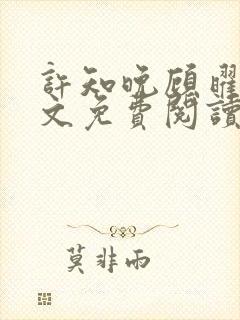 許知晚顧曜
文免費閱讀
莫非雨